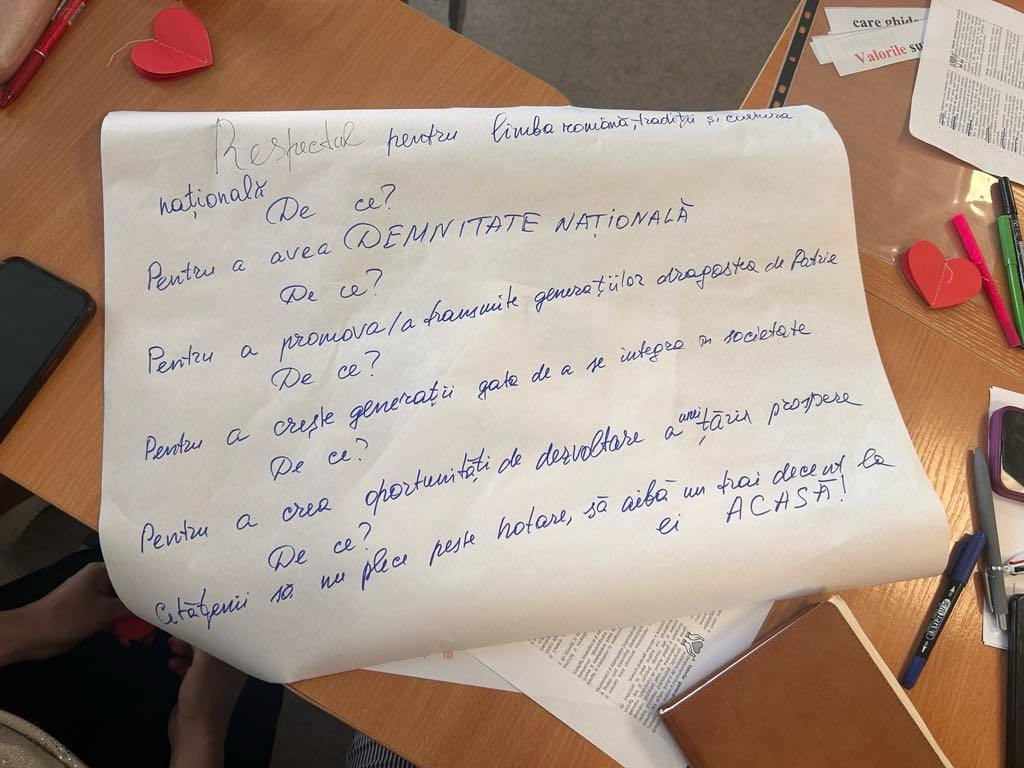 care ghide
Valorile su
Respectul pentru limba română, tradiții și cultura
națională
De ce?
Pentru a avea DEMNITATE NAȚIONALĂ
De ce?
Pentru a promova/a transmite generațiilor dragostea de Patrie
De ce?
Pentru a crește generații gata de a se integra în societate
De ce?
Pentru a crea oportunități de dezvoltare a unei țări prospere
De ce?
Cetățenii să nu plece peste hotare, să aibă un trai decent la
ei ACASĂ!